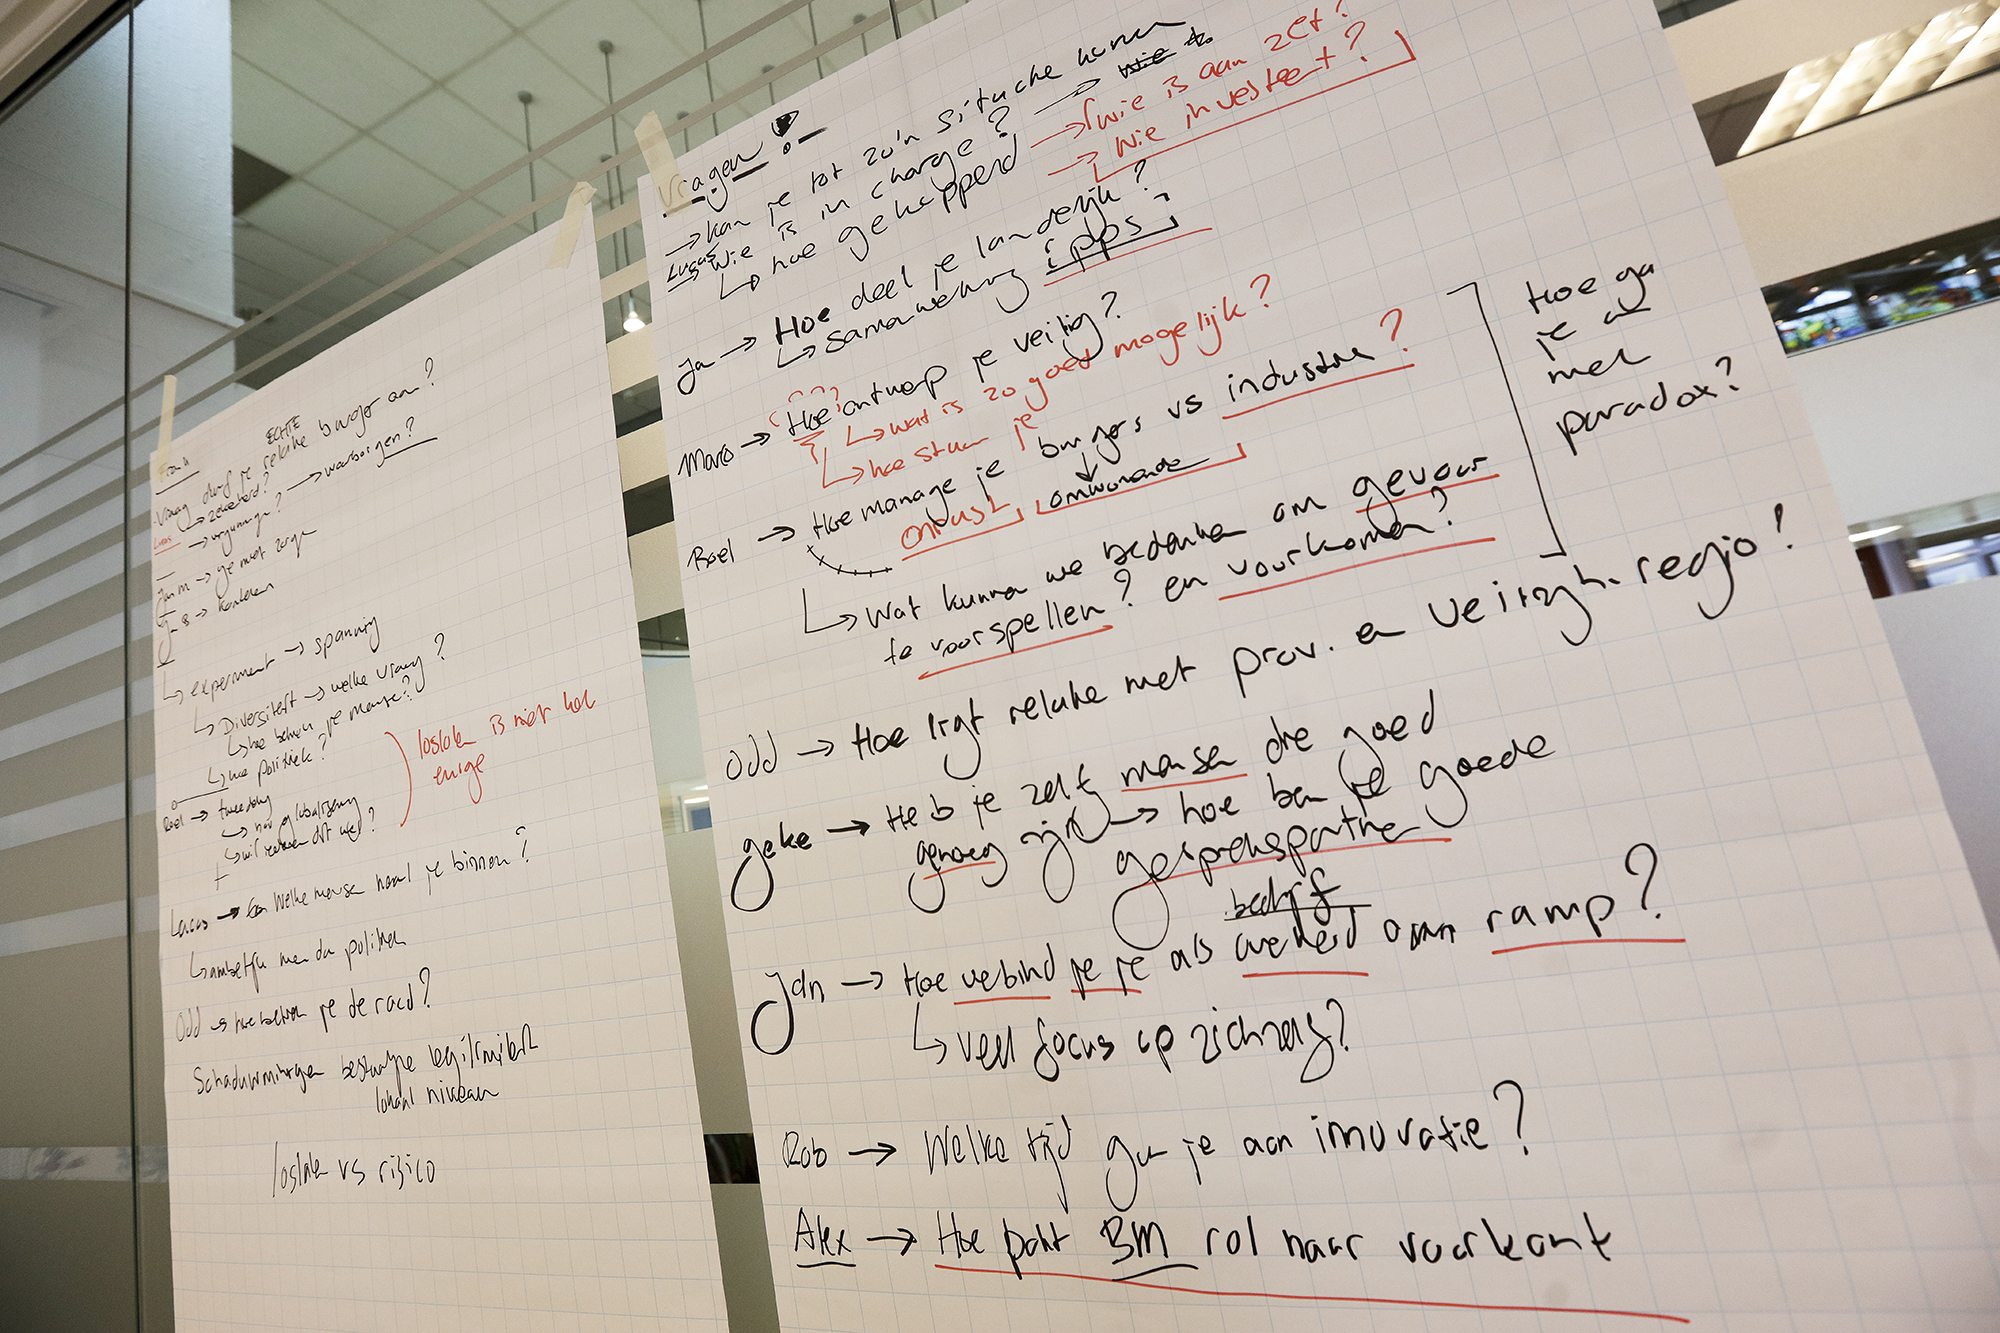 ECHTE
Frank
Vraag durf je relatie burger aan?
Lucas
→ vergunninge? → waarborgen?
Jan M → ga met zorge
↳ experiment → spanning
↳ Diversiteit → welke vraag?
↳ hoe politiek?
loslaten is niet het
enige
Roel → tweedeling
↳ hoe globalisering
↳ wil iedereen dit wel?
Lucas → Welke mense haal je binnen?
↳ ambetelijk
Odd → hoe betrek je de raad?
Schaduwmin
lokaal niveau
loslaten vs risico
Vragen!
→ kan je tot zo'n situatie komen
Lucas → Wie is in charge? → wie
↳ hoe gekoppeld
→ wie is aan zet?
→ Wie investeert?
Ja → Hoe deel je landelijk?
↳ Samenwerking ipps?
Marco → Hoe ontwerp je veilig?
↳ wat is zo goed mogelijk?
↳ hoe stuur je
Roel → Hoe manage je burgers vs industrie?
onrust omwonende
Hoe ga
je om
met
paradox?
↳ Wat kunnen we bedenken om gevaar
te voorspellen? en voorkomen?
Odd → Hoe ligt relatie met prov. en veiligh. regio?
Geke → Heb je zelf mense die goed
genoeg zijn → hoe ben je goede
gesprekspartner
bedrijf
Jan → Hoe verbind je je als overheid aan ramp?
↳ veel focus op zichzelf?
Rob → Welke tijd ga je aan innovatie?
Alex → Hoe pakt BM rol naar voorkant